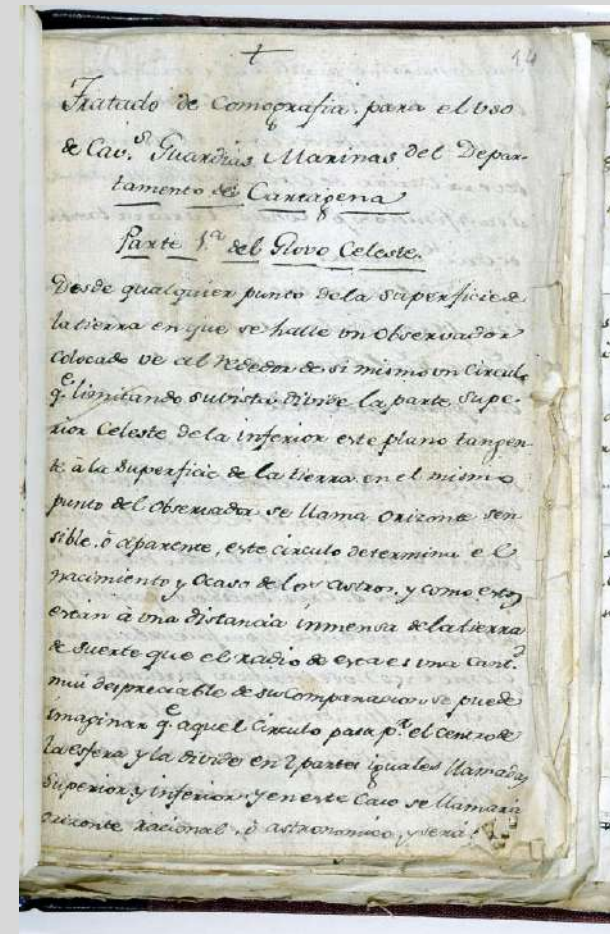 14
Tratado de Comografia para el uso
de Cav.s Guardias Marinas del Depar-
tamento de Cartagena
Parte 1.a del Glovo Celeste.
Desde qualquier punto dela superficie de
la tierra en que se halle un Observador
colocado ve al rededor de si mismo un Circulo
q.e limitando su vista divide la parte supe-
rior Celeste dela inferior este plano tangen-
te à la superficie de la tierra en el mismo
punto del Observador se llama Orizonte sen
sible, ô aparente, este circulo determina el
nacimiento y Ocaso de los astros, y como estos
están à una distancia inmensa dela tierra
de suerte que el radio de esta es una Cant.d
mui despreciable de su Comparacion se puede
imaginar q.e aquel Circulo pasa p.r el Centro de
la esfera y la divide en 2 partes iguales llamadas
Superior, y inferior y en este Caso se llamará
orizonte racional, ô astronomico, y será